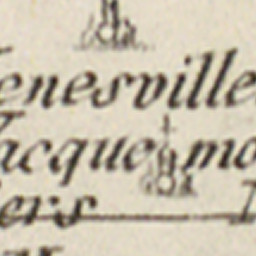 enesville
acquemo
ers